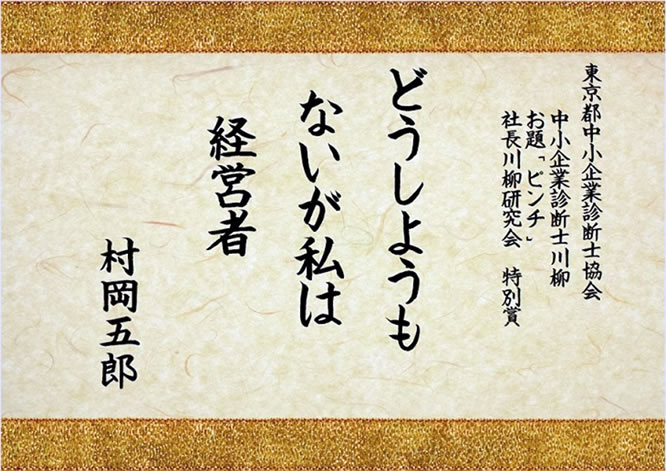 東京都中小企業診断士協会
中小企業診断士川柳
お題「ピンチ」
社長川柳研究会　特別賞
どうしようも
ないが私は
経営者
村岡五郎